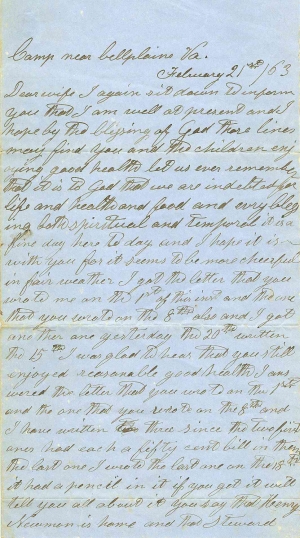 Camp near bellplaine Va.
February 21st /63
Dear wife I again sit down to inform
you that I am well at present and I
hope by the blessing of God these lines
may find you and the children enj
oying good health let us ever remember
that it is to God that we are indebted for
life and health and food and evry bles
ing both spiritual and temporal it is a
fine day here to day and I hope it is
with you for it seems to be more cheerful
in fair weather I got the letter that you
wrote me on the 1st of this inst and the one
that you wrote on the 8th also and I got
another one yesterday the 20th written
the 15th I was glad to hear that you still
enjoyed reasonable good health I ans
wered the letter that you wrote on the 1st
and the one that you wrote on the 8th and
I have written three since the two first
ones had each a fifty cent bill in them
the last one I wrote the last one on the 18th
it had a pencil in it if you got it will
tell you all about it you say that Henry
Newman is home and that Steward